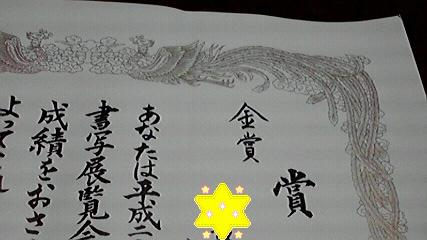 賞
金賞
あなたは平成二
書写展覧会
成績をおさ
よって